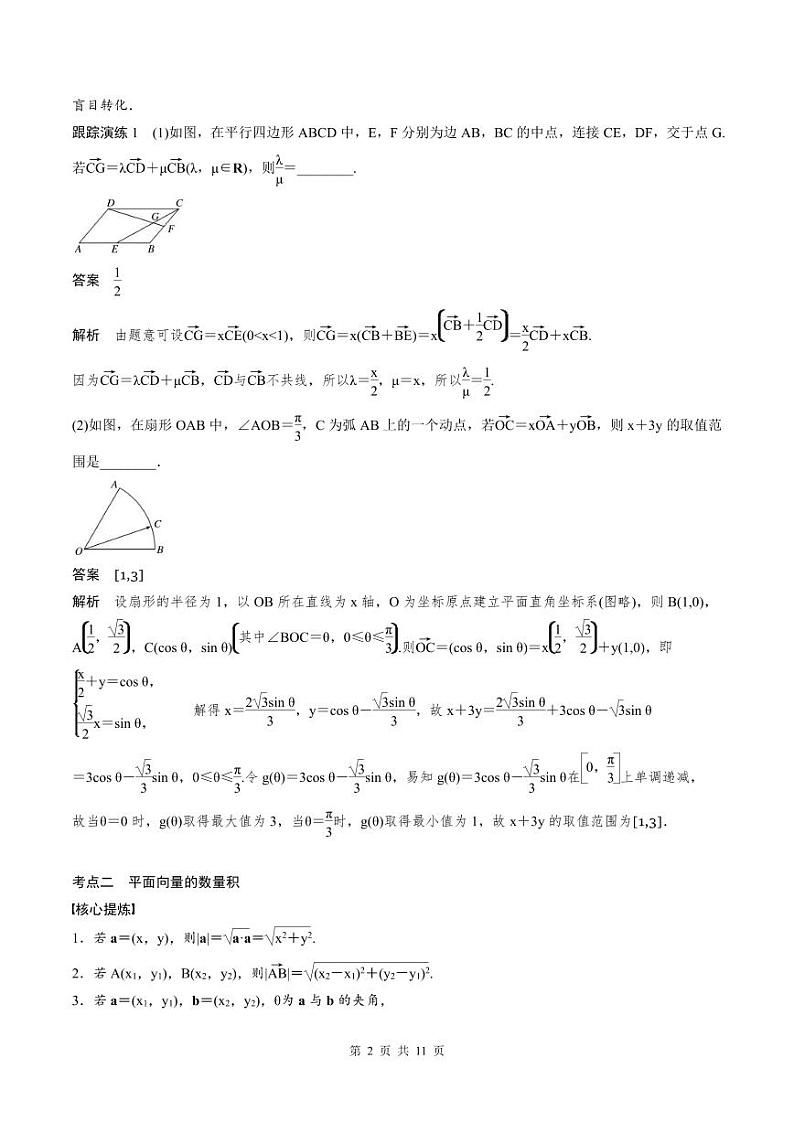 盲目转化．
跟踪演练 1　(1)如图，在平行四边形 ABCD 中，E，F 分别为边 AB，BC 的中点，连接 CE，DF，交于点 G.
若$\overrightarrow{CG}$＝λ$\overrightarrow{CD}$＋μ$\overrightarrow{CB}$(λ，μ∈R)，则$\frac{λ}{μ}$＝________.
D C G F A E B
答案　$\frac{1}{2}$
解析　由题意可设$\overrightarrow{CG}$＝x$\overrightarrow{CE}$(0<x<1)，则$\overrightarrow{CG}$＝x($\overrightarrow{CB}$＋$\overrightarrow{BE}$)＝x($\overrightarrow{CB}$＋$\frac{1}{2}$$\overrightarrow{CD}$)＝$\frac{x}{2}$$\overrightarrow{CD}$＋x$\overrightarrow{CB}$.
因为$\overrightarrow{CG}$＝λ$\overrightarrow{CD}$＋μ$\overrightarrow{CB}$，$\overrightarrow{CD}$与$\overrightarrow{CB}$不共线，所以λ＝$\frac{x}{2}$，μ＝x，所以$\frac{λ}{μ}$＝$\frac{1}{2}$.
(2)如图，在扇形 OAB 中，∠AOB＝$\frac{π}{3}$，C 为弧 AB 上的一个动点，若$\overrightarrow{OC}$＝x$\overrightarrow{OA}$＋y$\overrightarrow{OB}$，则 x＋3y 的取值范
围是________．
A C O B
答案　[1,3]
解析　设扇形的半径为 1，以 OB 所在直线为 x 轴，O 为坐标原点建立平面直角坐标系(图略)，则 B(1,0)，
A($\frac{1}{2}$，$\frac{\sqrt{3}}{2}$)，C(cos θ，sin θ)(其中∠BOC＝θ，0≤θ≤$\frac{π}{3}$).则$\overrightarrow{OC}$＝(cos θ，sin θ)＝x($\frac{1}{2}$，$\frac{\sqrt{3}}{2}$)＋y(1,0)，即
$\begin{cases}\frac{x}{2}＋y＝cos θ，\\ \frac{\sqrt{3}}{2}x＝sin θ，\end{cases}$　解得 x＝$\frac{2\sqrt{3}sin θ}{3}$，y＝cos θ－$\frac{\sqrt{3}sin θ}{3}$，故 x＋3y＝$\frac{2\sqrt{3}sin θ}{3}$＋3cos θ－$\sqrt{3}$sin θ
＝3cos θ－$\frac{\sqrt{3}}{3}$sin θ，0≤θ≤$\frac{π}{3}$.令 g(θ)＝3cos θ－$\frac{\sqrt{3}}{3}$sin θ，易知 g(θ)＝3cos θ－$\frac{\sqrt{3}}{3}$sin θ在[0，$\frac{π}{3}$]上单调递减，
故当θ＝0 时，g(θ)取得最大值为 3，当θ＝$\frac{π}{3}$时，g(θ)取得最小值为 1，故 x＋3y 的取值范围为[1,3]．
考点二　平面向量的数量积
【核心提炼】
1．若 a＝(x，y)，则|a|＝$\sqrt{a·a}$＝$\sqrt{x^2＋y^2}$.
2．若 A(x₁，y₁)，B(x₂，y₂)，则|$\overrightarrow{AB}$|＝$\sqrt{(x_2－x_1)^2＋(y_2－y_1)^2}$.
3．若 a＝(x₁，y₁)，b＝(x₂，y₂)，θ为 a 与 b 的夹角，
第 2 页 共 11 页